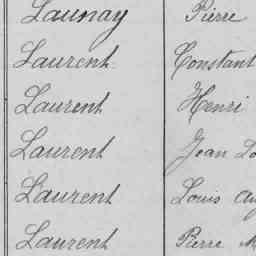 Launay Pierre
Laurent Constant
Laurent Henri
Laurent Jean
Laurent Louis
Laurent Pierre